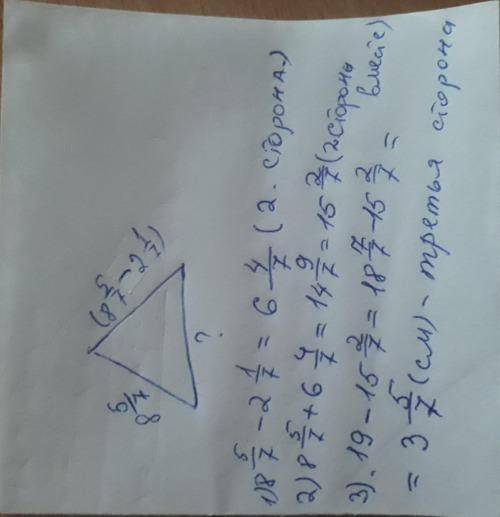 8 5/7
(8 5/7 - 2 1/7)
?
1) 8 5/7 - 2 1/7 = 6 4/7 (2. сторона.)
2) 8 5/7 + 6 4/7 = 14 9/7 = 15 2/7 (2 стороны
вместе)
3). 19 - 15 2/7 = 18 7/7 - 15 2/7 =
= 3 5/7 (см) - третья сторона